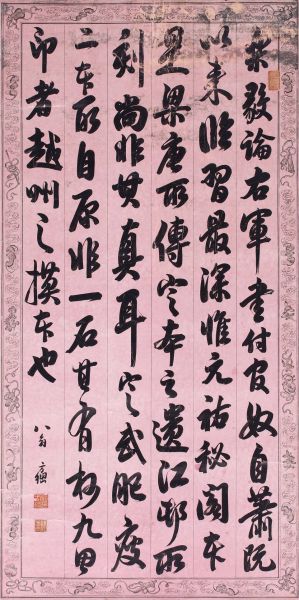 樂毅論右軍書付官奴自蕭阮
以来臨習最深惟元祐秘閣本
是梁唐所傳定本之遺江邨所
刻尚非其真耳定武肥瘦
二本所自原非一石其有
九
印者越州之摸本也
八翁